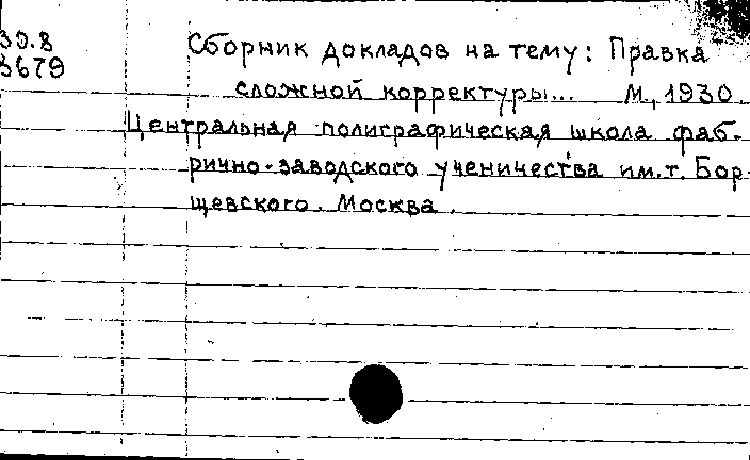 30.8
3679
Сборник докладов на тему: Правка
сложной корректуры... М., 1930.
Центральная полиграфическая школа фаб-
рично-заводского ученичества им. т. Бор-
щевского. Москва.